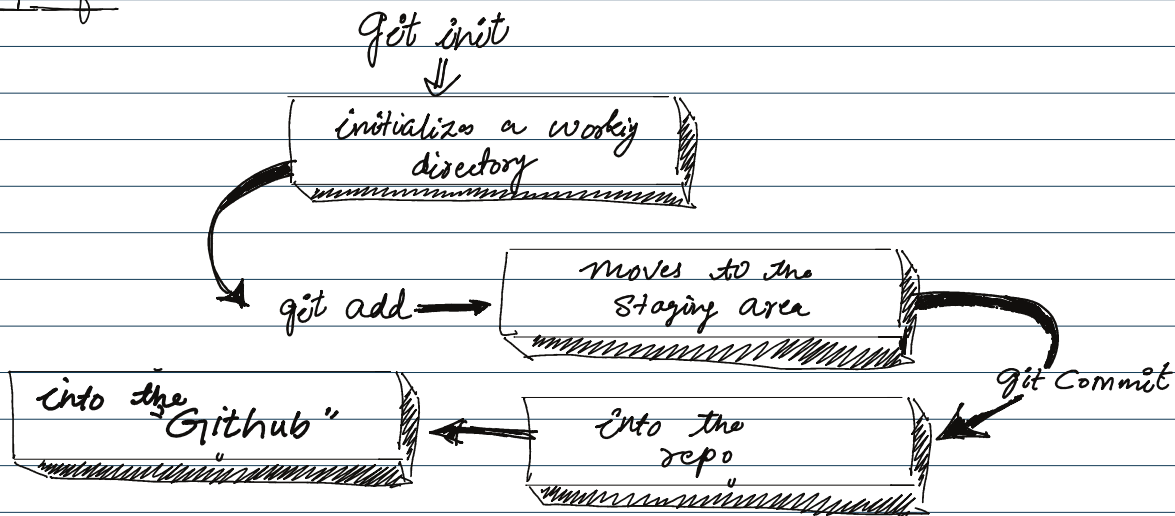 git init
initializes a workig
directory
git add
moves to the
staging area
git commit
into the
repo
into the
"Github"